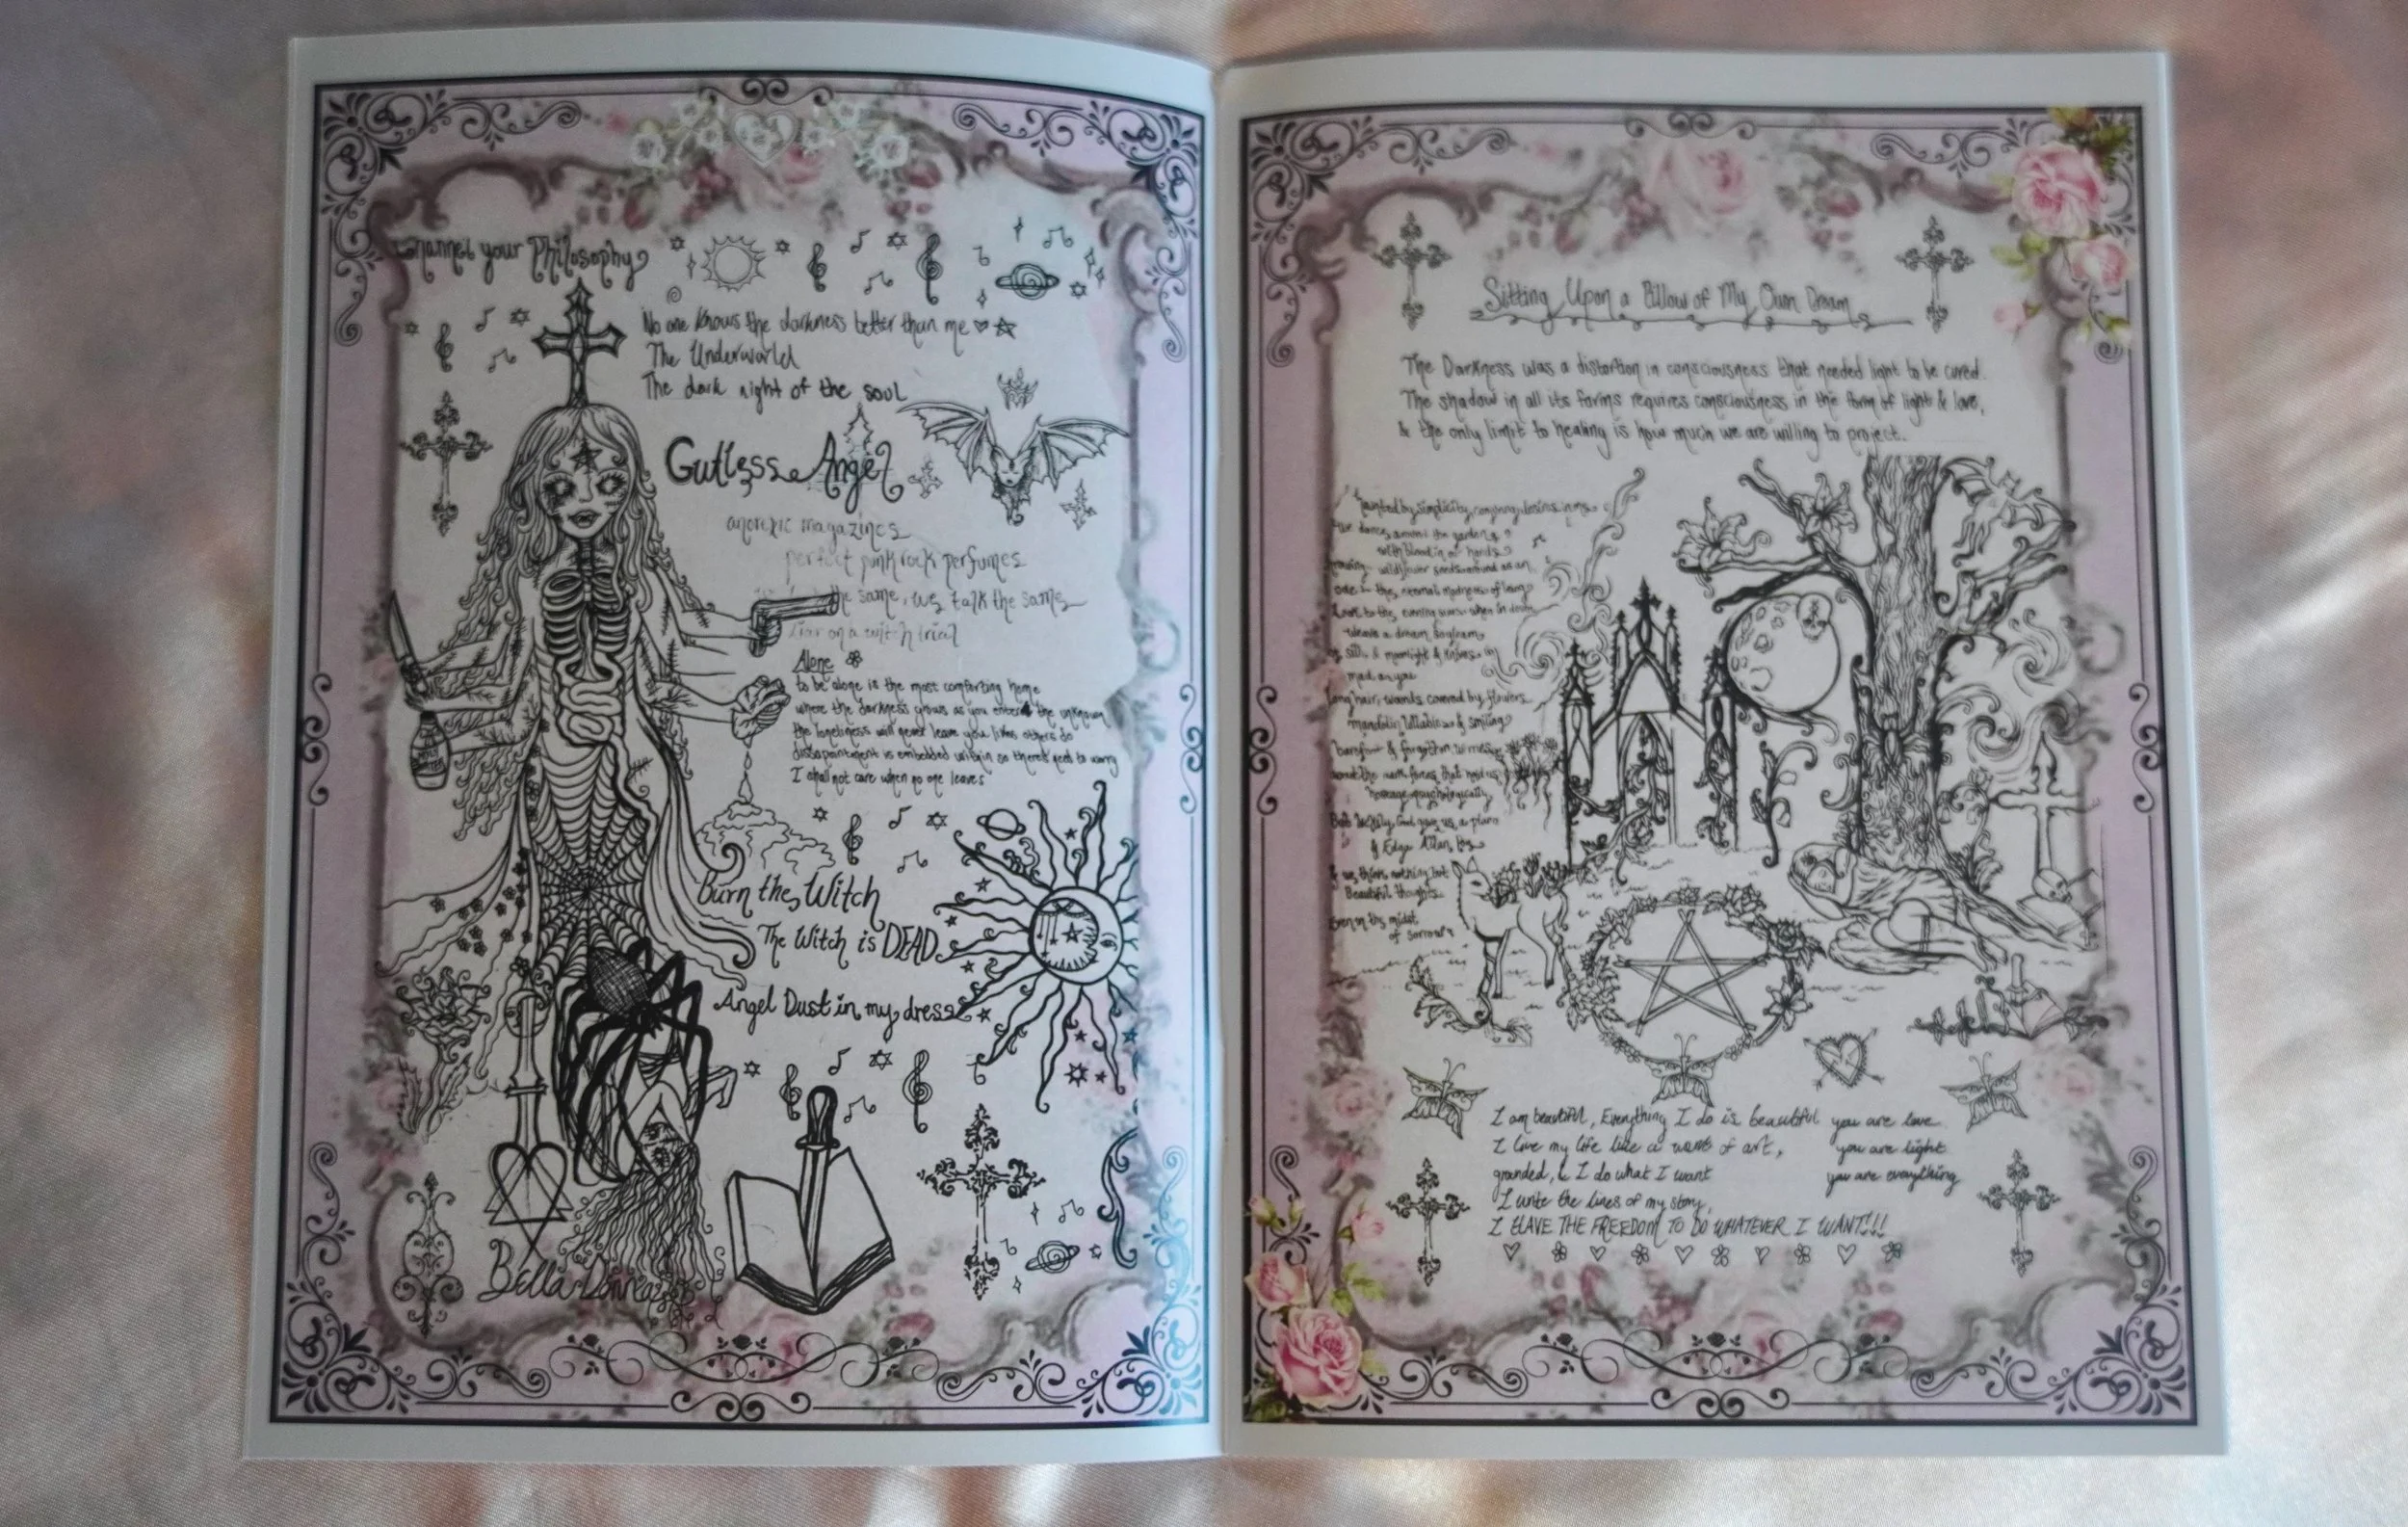 Channel your Philosophy
No one knows the darkness better than me
The Underworld
The dark night of the soul
Gutless Angel
anorexic magazines
perfect punk rock perfumes
the same, we talk the same
liar on a witch trial
Alone
to be alone is the most comforting home
where the darkness grows as you entered the unknown
the loneliness will never leave you like others do
dissapointment is embedded within so theres need to worry
I shall not care when no one leaves
Burn the Witch
The Witch is DEAD
Angel Dust in my dress
Bella Donna
Sitting Upon a Pillow of My Own Dream
The Darkness was a distortion in consciousness that needed light to be cured.
The shadow in all its forms requires consciousness in the form of light & love,
& the only limit to healing is how much we are willing to project.
by simplicity,
around the garden
with blood in our hands
wildflower seeds around as an
the eternal madness of being
to the evening when in doubt
a dream
silk & moonlight &
mad as you
long hair, woods covered by flowers
mandolin lullabies & smiling
barefoot & forgotten
psychologically
God gave us a piano
& Edgar Allan Poe
& we think nothing but
Beautiful thoughts
Even in the midst
of sorrow
I am beautiful, Everything I do is beautiful
I live my life like a work of art,
granded, & I do what I want
I write the lines of my story,
I HAVE THE FREEDOM TO DO WHATEVER I WANT!!!
you are love
you are light
you are everything